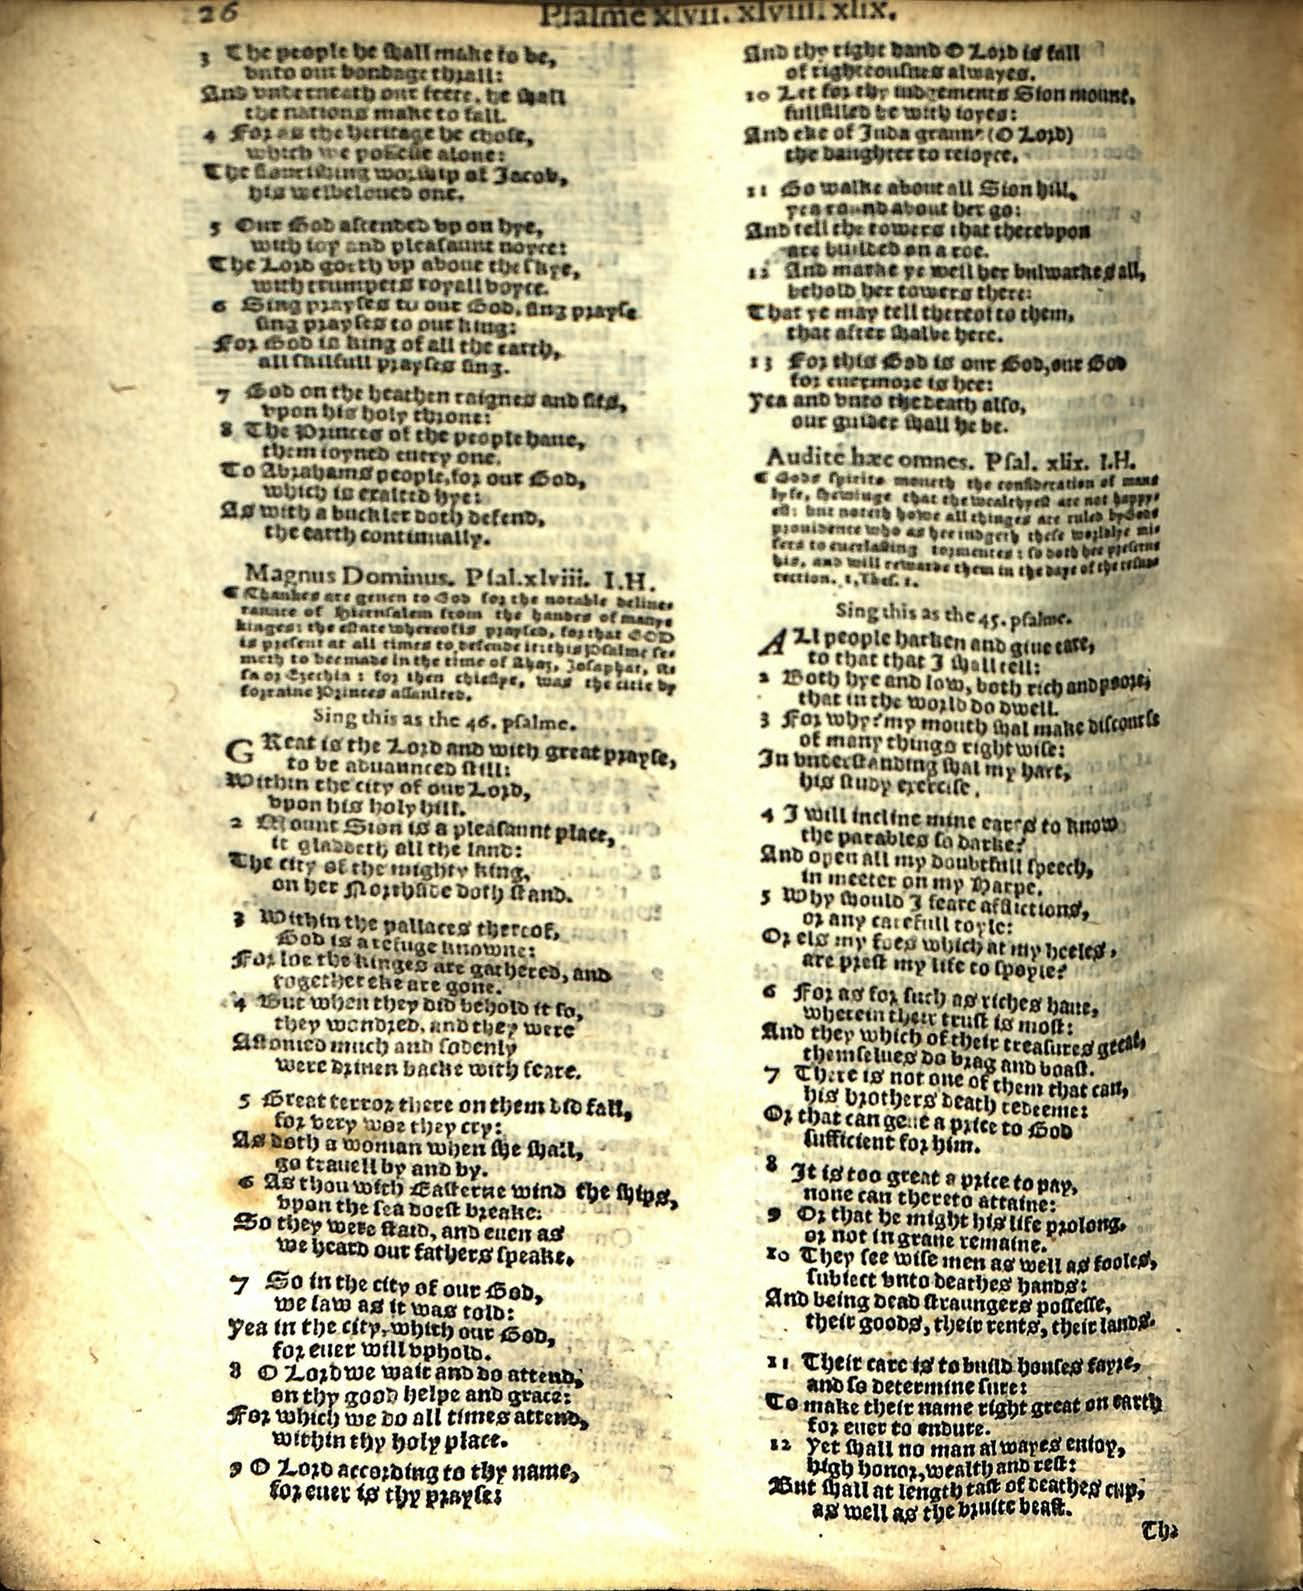 26
Psalme xlvii. xlviii. xlix.
3 The people he shall make to be,
vnto our bondage thrall:
And vnderneath our feete, he shall
the nations make to fall.
4 For as the heritage he chose,
which we possesse alone:
The florishing worship of Jacob,
his welbeloued one.
5 Our God ascended vp on hye,
with ioy and pleasaunt noyce:
The Lord goeth vp aboue the skye,
with trumpets royall voyce.
6 Sing prayses to our God, sing prayse
sing prayses to our king:
For God is king of all the earth,
all skilfull prayses sing.
7 God on the heathen raignes and sits,
vpon his holy throne:
8 The Princes of the people haue,
them ioyned euery one.
To Abrahams people, for our God,
which is exalted hye:
As with a buckler doth defend,
the earth continually.
Magnus Dominus. Psal.xlviii. I.H.
¶ Thankes are geuen to God for the notable deliue-
raunce of Hierusalem from the handes of manye
kinges: the estate whereof is praysed, for that GOD
is present at all times to defende it: this Psalme see-
meth to bee made in the time of Ahaz, Josaphat, As-
sa or Ezechia: for then chieflye, was the citie by
forraine Princes assaulted.
Sing this as the 46. psalme.
GReat is the Lord and with great prayse,
to be aduaunced still:
Within the city of our Lord,
vpon his holy hill.
2 Mount Sion is a pleasaunt place,
it gladdeth all the land:
The city of the mighty king,
on her Northside doth stand.
3 Within the pallaces thereof,
God is a refuge knowne:
For loe the kinges are gathered, and
together eke are gone.
4 But when they did behold it so,
they wondred, and they were
Astonied much and sodenly
were driuen backe with feare.
5 Great terror there on them did fall,
for very woe they cry:
As doth a woman when she shall,
go trauell by and by.
6 As thou with Easterne wind the ships,
vpon the sea doest breake:
So they were staid, and euen as
we heard our fathers speake.
7 So in the city of our God,
we saw as it was told:
Yea in the city, which our God,
for euer will vphold.
8 O Lord we wait and do attend,
on thy good helpe and grace:
For which we do all times attend,
within thy holy place.
9 O Lord according to thy name,
for euer is thy prayse:
And thy right hand O Lord is full
of righteousnes alwayes.
10 Let for thy iudgements Sion mount,
fullfilled be with ioyes:
And eke of Juda graunt (O Lord)
the daughter to reioyce.
11 Go walke about all Sion hill,
yea round about her go:
And tell the towers that therevpon
are builded on a roe.
12 And marke ye well her bulwarkes all,
behold her towers there:
That ye may tell thereof to them,
that after shalbe here.
13 For this God is our God, our God
for euermore is hee:
Yea and vnto the death also,
our guider shall he be.
Audite hæc omnes. Psal. xlix. I.H.
¶ Gods spirite moueth the consideration of mans
lyfe, shewinge that the wealthyest are not happy-
est: but noteth howe all thinges are ruled by Gods
prouidence who as hee iudgeth these worldlye mi-
sers to euerlasting tormentes: so doth hee preserue
his, and will rewarde them in the daye of the resur-
rection. 1, Thes. 1.
Sing this as the 45. psalme.
ALl people harken and giue eare,
to that that I shall tell:
2 Both hye and low, both rich and poore,
that in the world do dwell.
3 For why? my mouth shal make discourse
of many things right wise:
In vnderstanding shal my hart,
his study exercise.
4 I will incline mine eares to know
the parables so darke?
And open all my doubtfull speech,
in meeter on my Harpe.
5 Why should I feare afflictions,
or any carefull toyle:
Or els my foes which at my heeles,
are prest my life to spoyle?
6 For as for such as riches haue,
wherein their trust is most:
And they which of their treasures great,
themselues do brag and boast.
7 There is not one of them that can,
his brothers death redeeme:
Or that can geue a price to God
sufficient for him.
8 It is too great a price to pay,
none can thereto attaine:
9 Or that he might his life prolong,
or not in graue remaine.
10 They see wise men as well as fooles,
subiect vnto deathes hands:
And being dead straungers possesse,
their goods, their rents, their lands.
11 Their care is to build houses fayre,
and so determine sure:
To make their name right great on earth
for euer to endure.
12 Yet shall no man alwayes enioy,
high honor, wealth and rest:
But shall at length tast of deathes cup,
as well as the bruite beast.
The